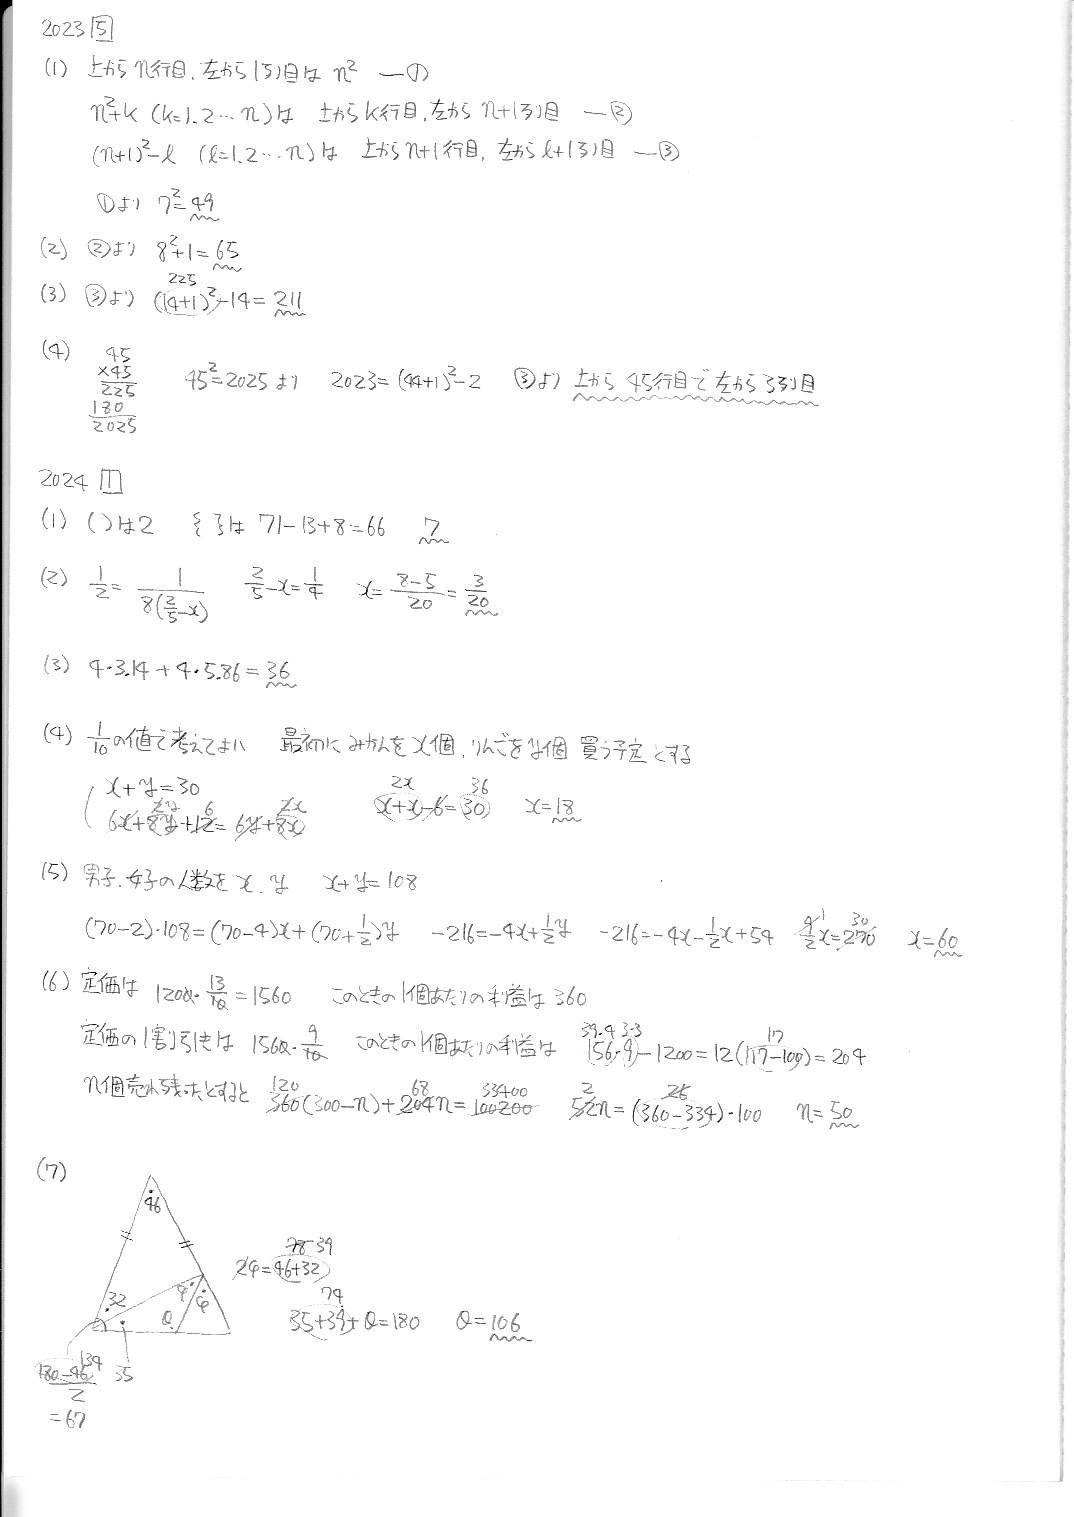 2023 5
(1) 上からn行目,左から1列目は n² —①
n²+k (k=1,2…n)は 上からk行目,左から n+1列目 —②
(n+1)²-l (l=1,2…n)は 上からn+1行目,左からl+1列目 —③
①より 7²=49
(2) ②より 8²+1=65
(3) ③より (14+1)²-14=211
225
(4) 45
×45
225
180
2025
45²=2025より 2023=(44+1)²-2 ③より 上から45行目で左から3列目
2024 1
(1) ( )は2 { }は 71-13+8=66 7
(2) 1/2=1/8(2/5-x) 2/5-x=1/4 x=8-5/20=3/20
(3) 4・3.14+4・5.86=36
(4) 1/10の値で考えてよい 最初にみかんをx個,りんごをy個 買う予定とする
x+y=30
6x+8y+12=6y+8x
2y 6 2x
x+x-6=30 x=18
2x 36
(5) 男子,女子の人数を x,y x+y=108
(70-2)・108=(70-4)x+(70+1/2)y -216=-4x+1/2y -216=-4x-1/2x+54 9/2x=270 x=60
1 30
(6) 定価は 1200・13/10=1560 このときの1個あたりの利益は360
定価の1割引きは 1560・9/10 このときの1個あたりの利益は 156・9-1200=12(117-100)=204
39・4 3・3 17
n個売れ残ったとすると 360(300-n)+204n=100200 52n=(360-334)・100 n=50
120 68 33400 2 26
(7)
46
32
φ φ
θ
180-46/2
134
=67
35
2φ=46+32
78 39
35+39+θ=180 θ=106
74